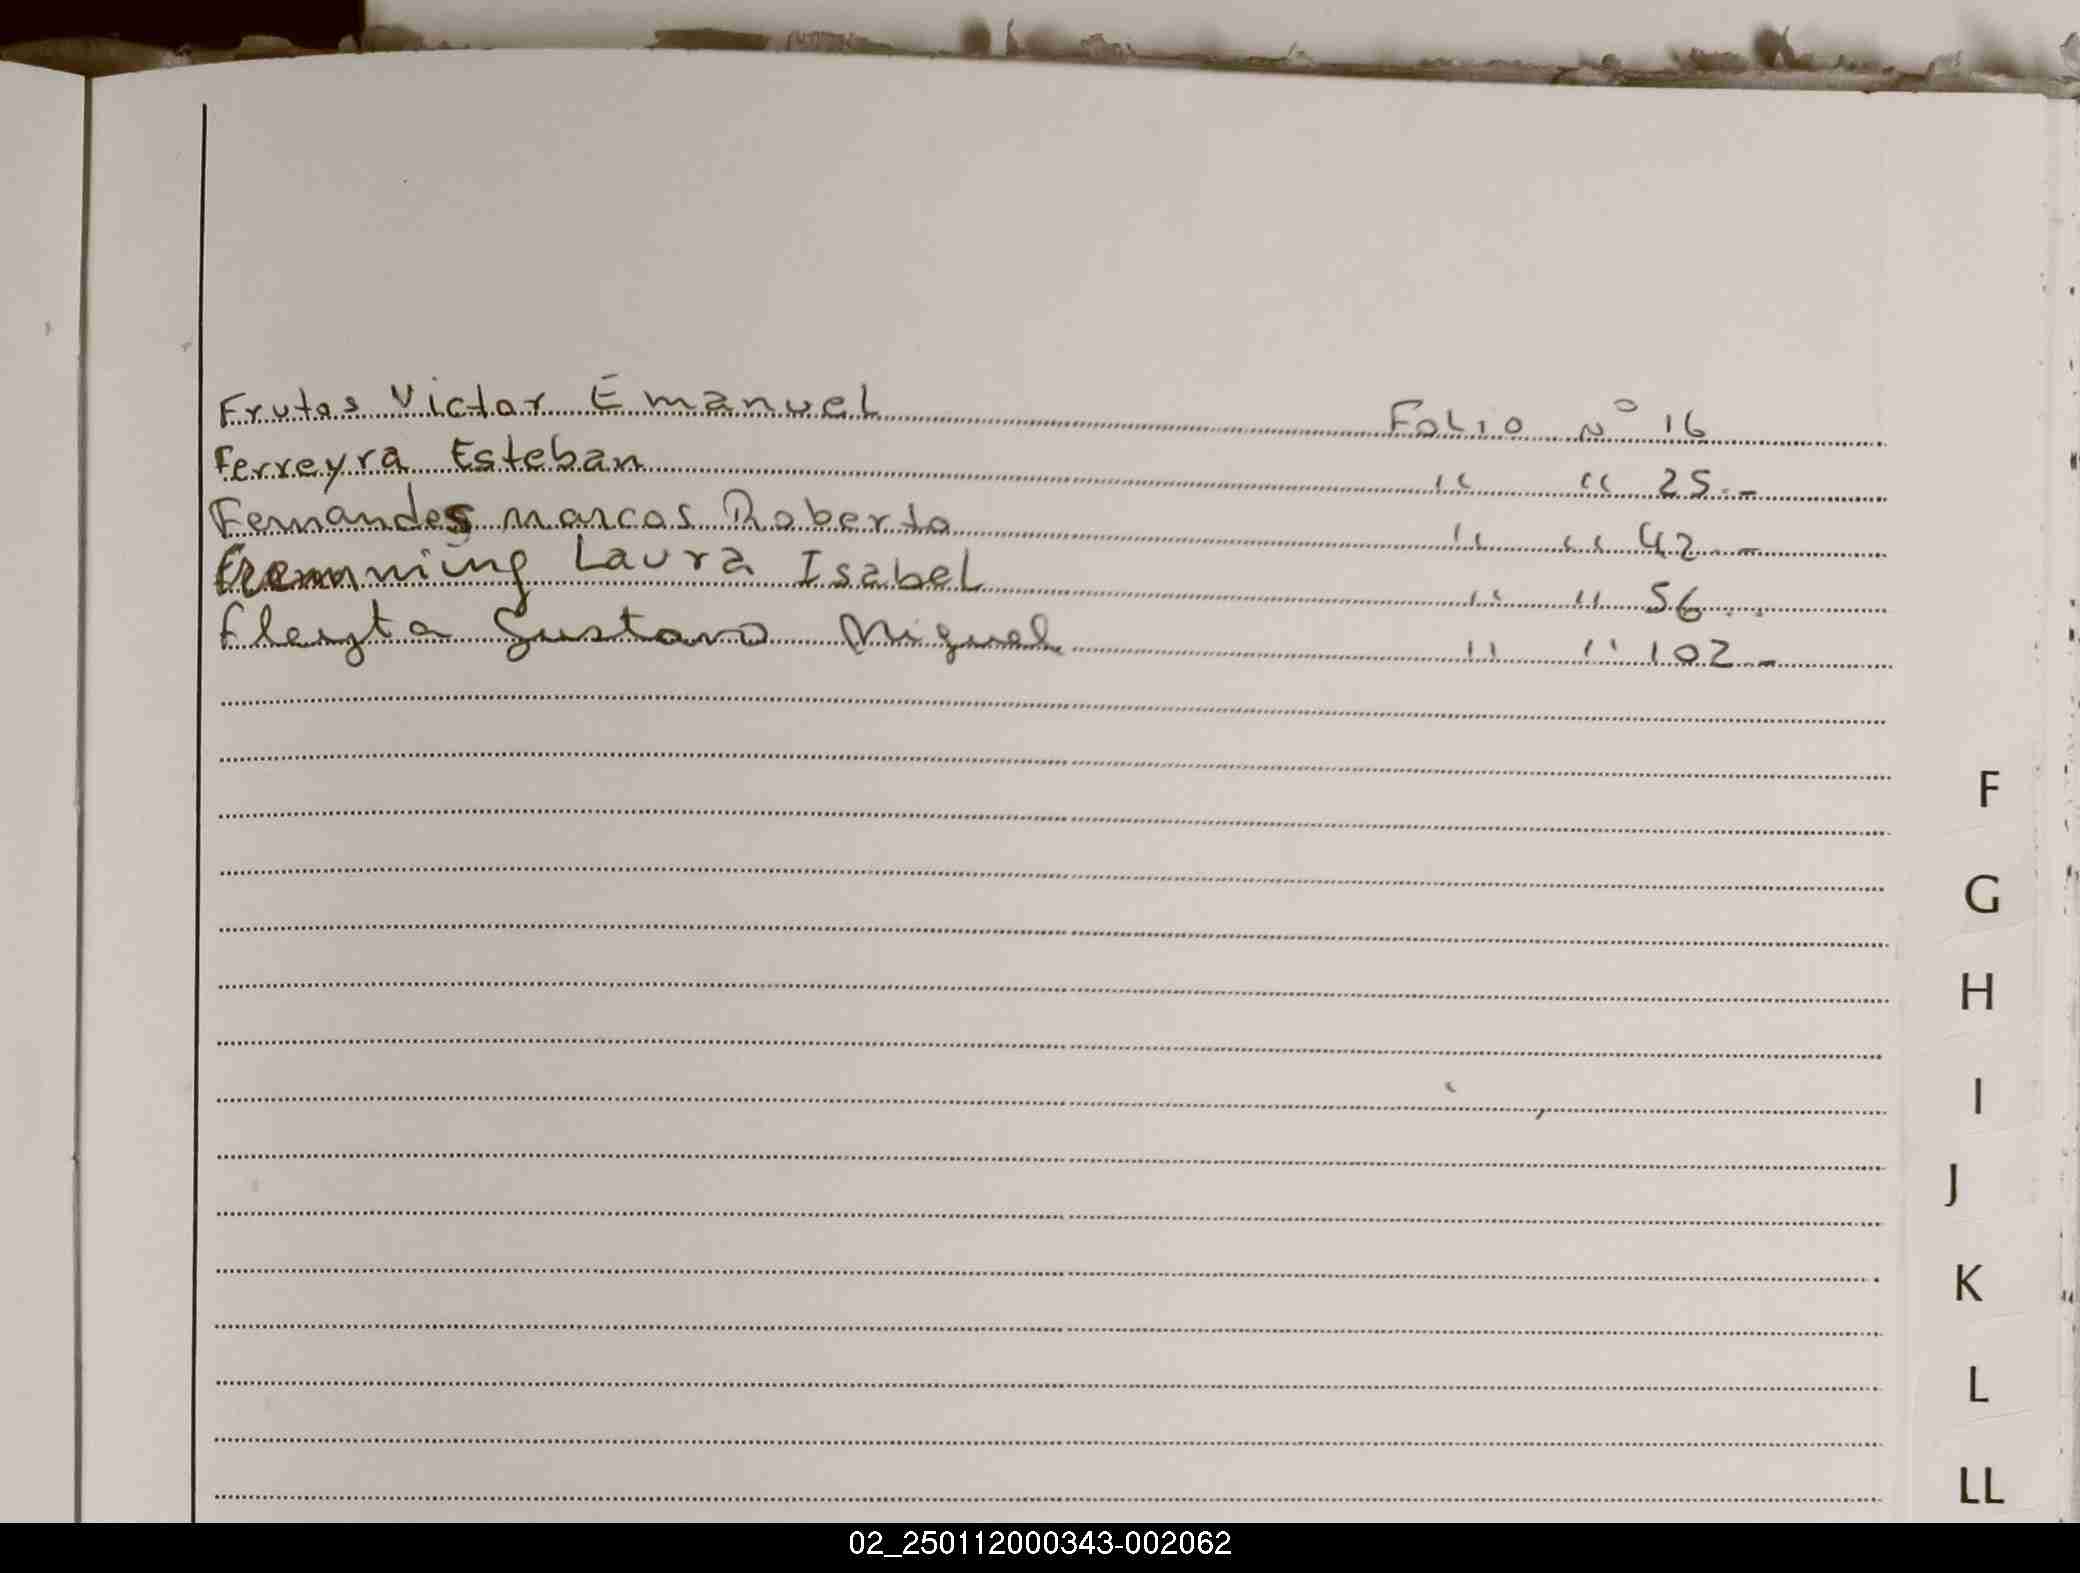 Frutos Victor Emanuel Folio Nº 16
Ferreyra Esteban " " 25.-
Fernandes Marcos Roberto " " 42.-
Laura Isabel " " 56..
Fleyta Gustavo Miguel " " 102.-
F
G
H
I
J
K
L
LL
02_250112000343-002062